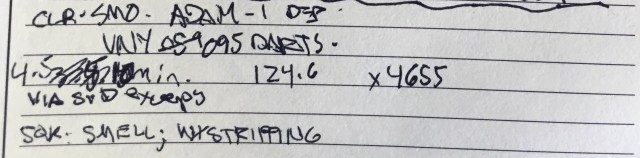 CLR. SMO. ADAM-1 DEP.
VNY 059095 DARTS.
4.5 10min. 124.6 x4655
VIA SVD except
SQK: SMELL; WXSTRIPPING